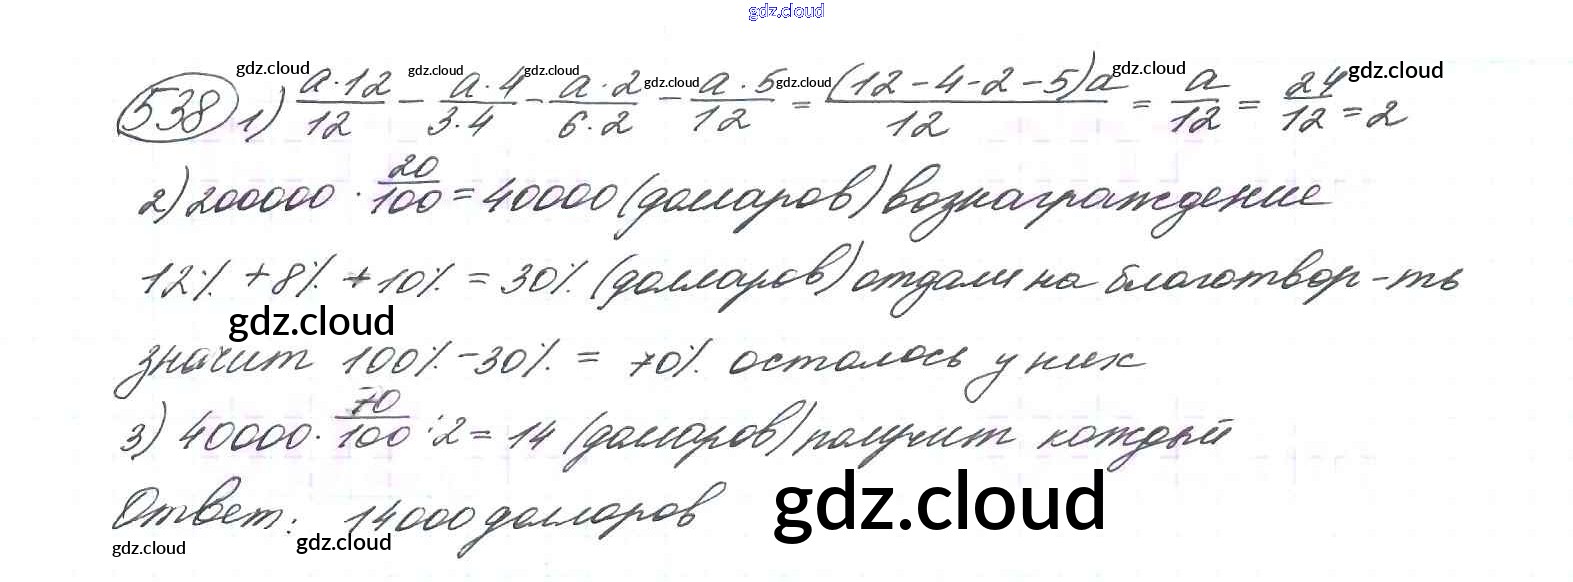 gdz.cloud
538 1) a·12/12 - a·4/3·4 - a·2/6·2 - a·5/12 = (12-4-2-5)a/12 = a/12 = 24/12 = 2
gdz.cloud gdz.cloud gdz.cloud gdz.cloud gdz.cloud gdz.cloud gdz.cloud
2) 200000 · 20/100 = 40000 (долларов) вознаграждение
12% + 8% + 10% = 30% (долларов) отдали на благотвор-ть
gdz.cloud
значит 100% - 30% = 70% осталось у них
3) 40000 · 70/100 : 2 = 14 (долларов) получит каждый
gdz.cloud
Ответ: 14000 долларов
gdz.cloud gdz.cloud